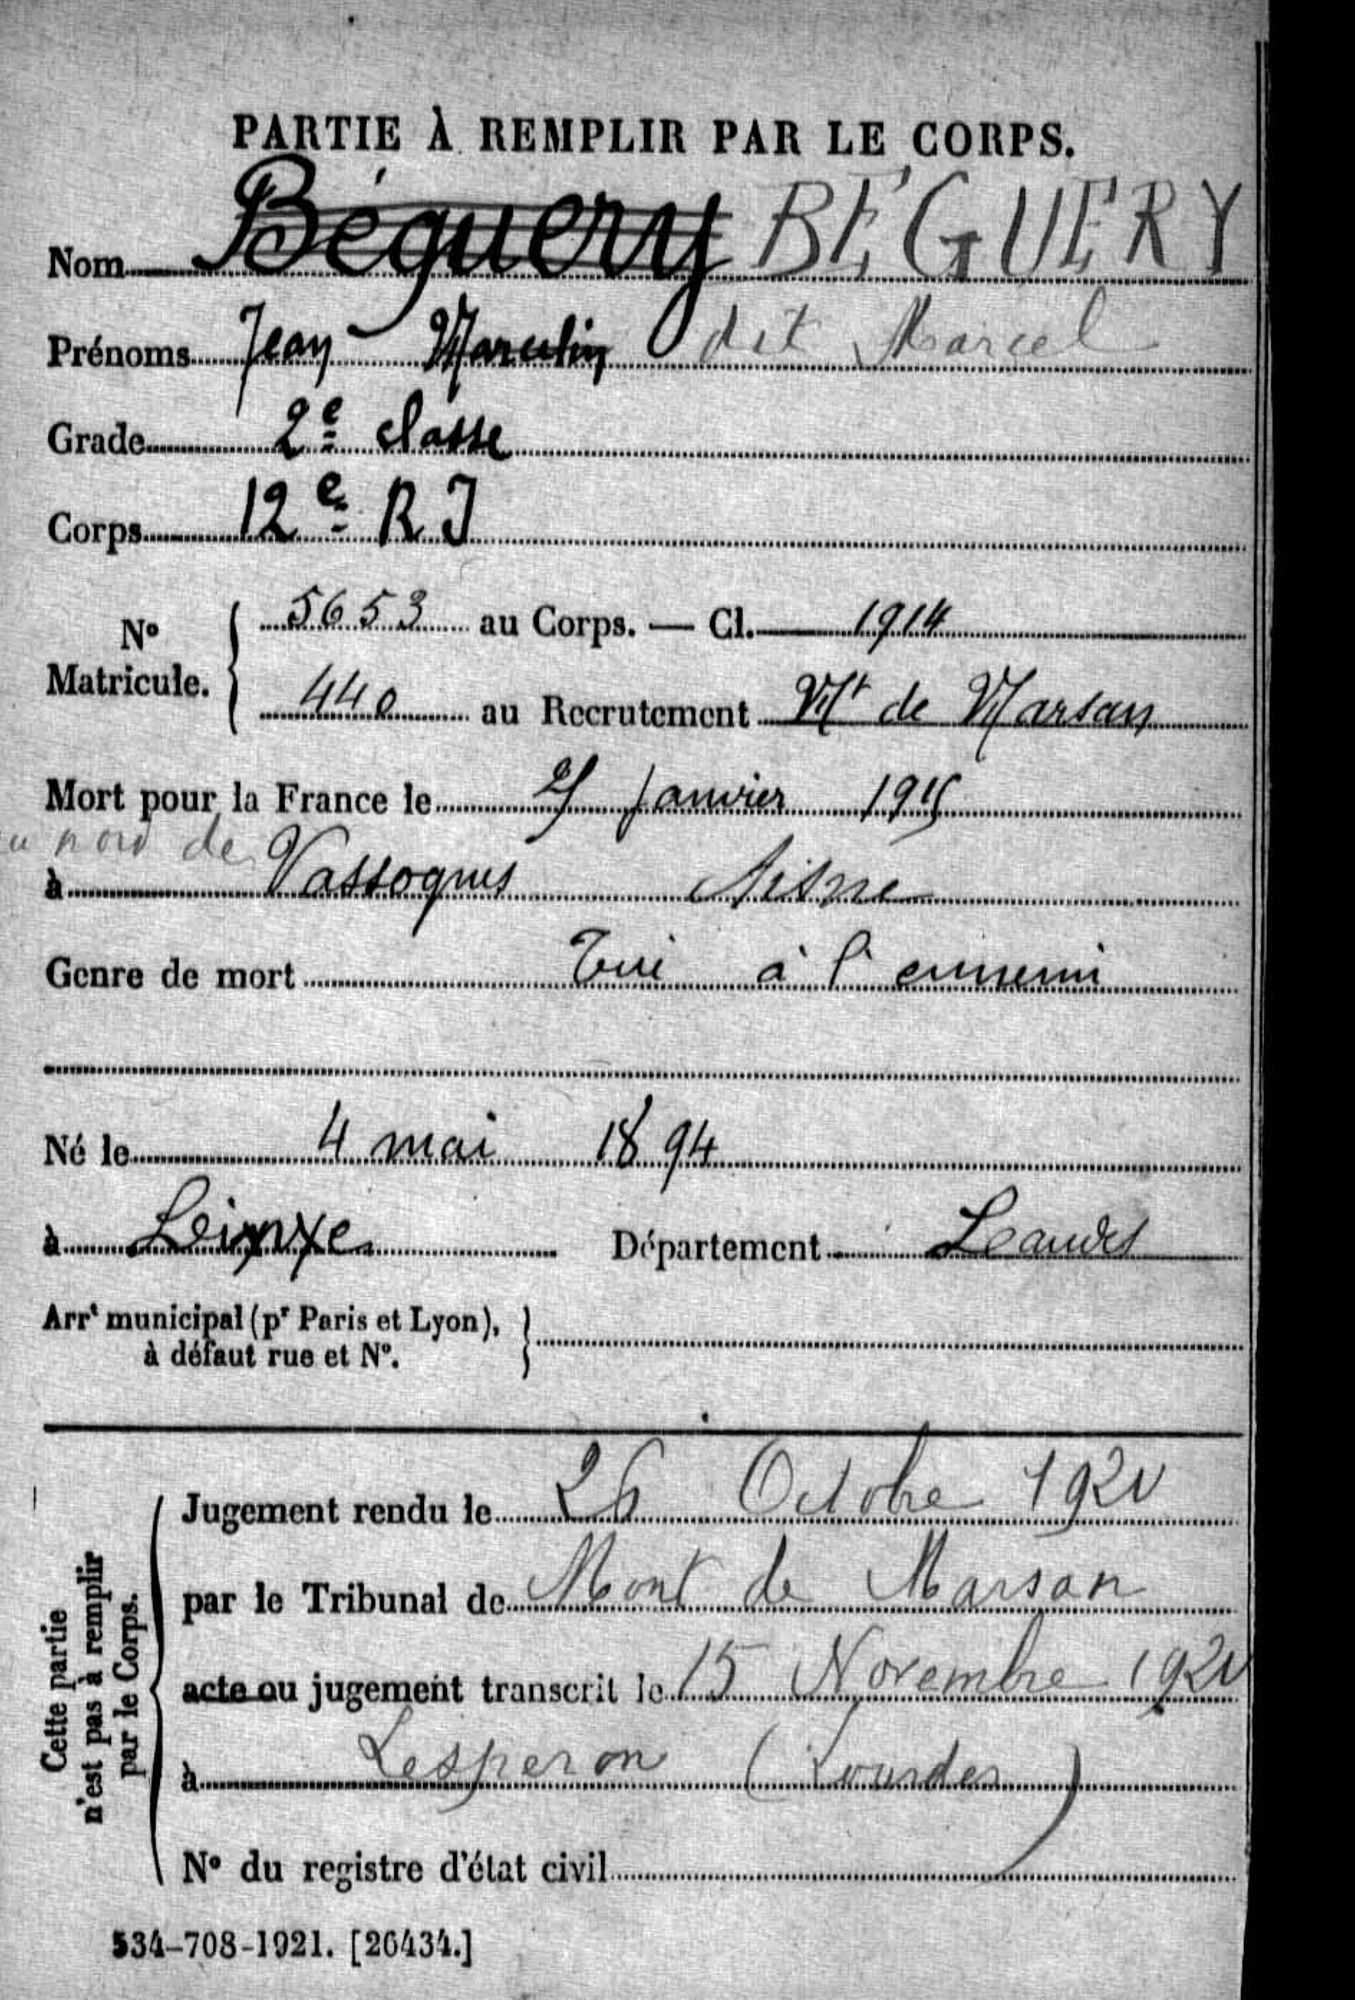 PARTIE À REMPLIR PAR LE CORPS.
Nom Béguery BÉGUERY
Prénoms Jean Marcelin dit Marcel
Grade 2e classe
Corps 12e R I
No Matricule. 5653 au Corps. — Cl. 1914
440 au Recrutement Mt de Marsan
Mort pour la France le janvier 1915
au nord de
à Vassognes Aisne
Genre de mort Tué à l'ennemi
Né le 4 mai 1894
à Linxe Département Landes
Arrt municipal (pr Paris et Lyon),
à défaut rue et No.
Cette partie
n'est pas à remplir
par le Corps.
Jugement rendu le 26 Octobre 192
par le Tribunal de Mont de Marsan
acte ou jugement transcrit le 15 Novembre 192
à Lesperon (Landes)
No du registre d'état civil
534-708-1921. [26434.]